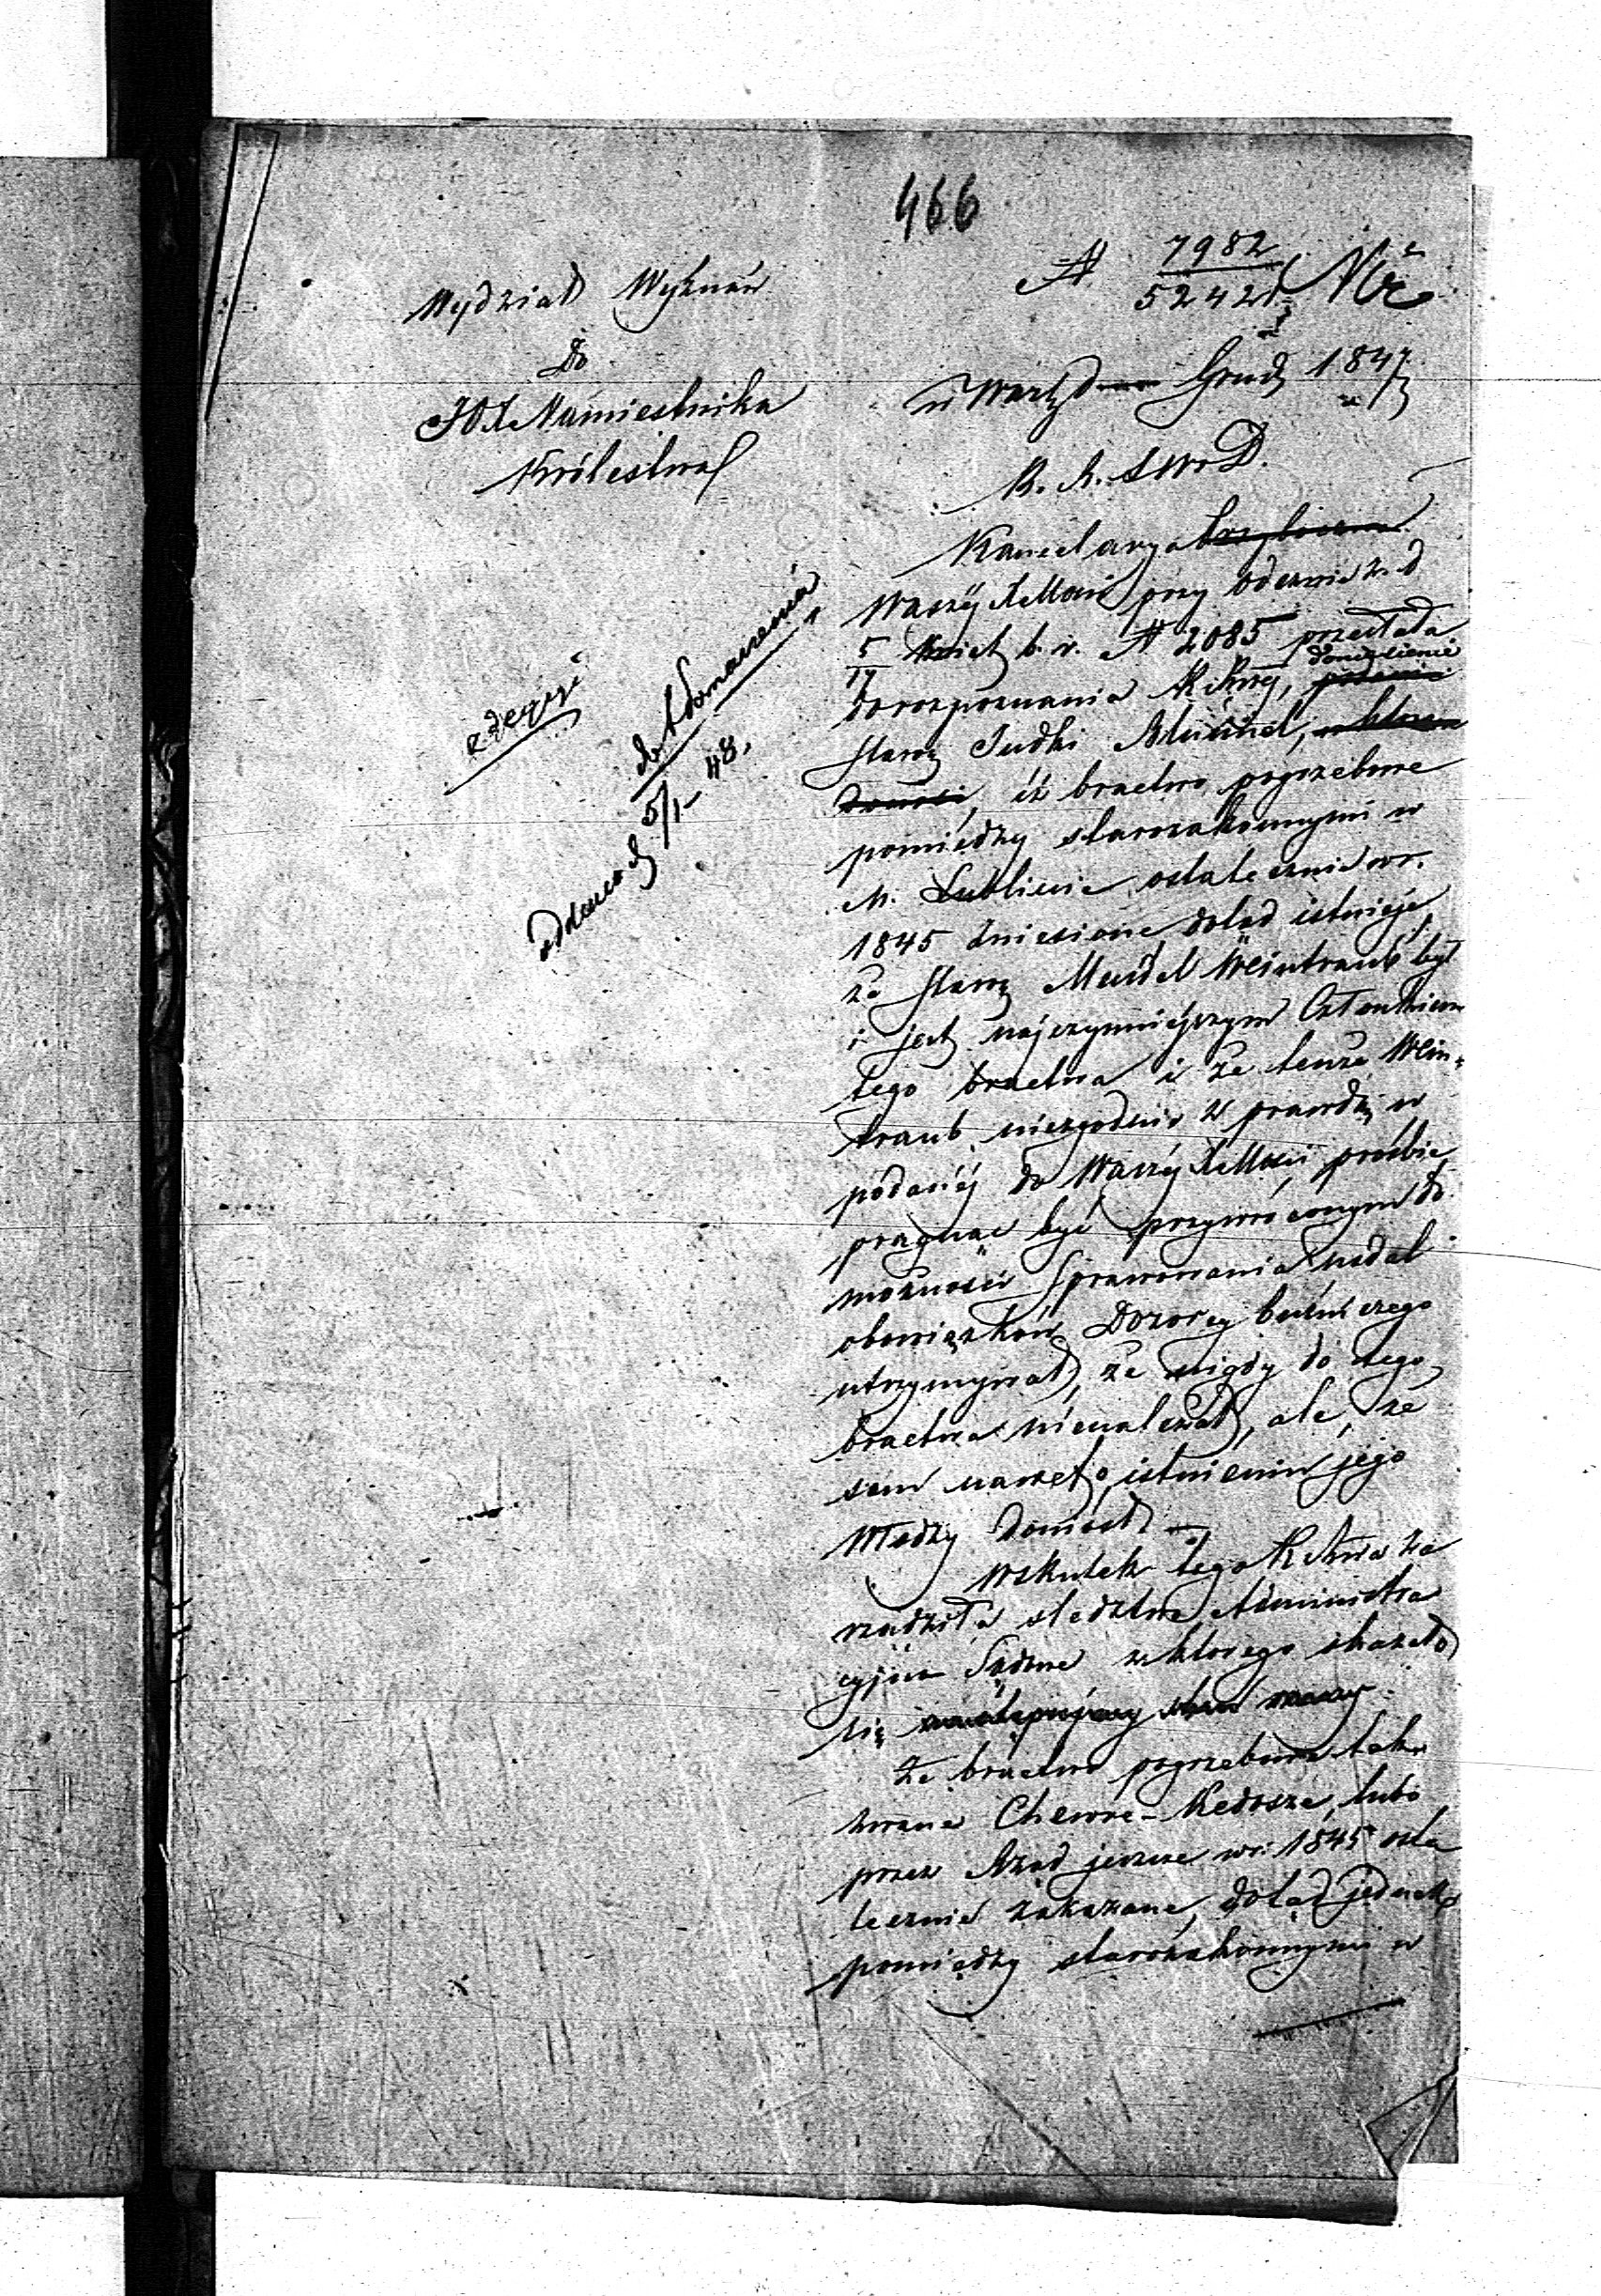 466
Wydział Wyznań
do
JO. X. Namiestnika
Królestwa
N 7982/52421
w Warsz d Grud 1847
K. R. S. W. i D.
z decyzyi
do odznaczenia
5/1 48.
Kancelarya Przyboczna
Waszéj X. Mości przy odezwie z d
5/17 Kwiet b. r. N 2085 przesłała
do rozpoznania K. Rząd, doniesienie podanie
Staroz Judki, w którem
donosi, iż bractwo pogrzebowe
pomiędzy starozakonnymi w
M. Lublinie ostatecznie w r.
1845 zniesione dotąd istnieje,
że Staroz Mendel Weintraub był
i jest najczynniejszym Członkiem
tego bractwa i że tenże Wein-
traub niezgodnie z prawdą w
podanéj do Waszéj X. Mości prośbie
pragnąc być przywróconym do
możności sprawowania nadal
obowiązków Dozorcy bużniczego
utrzymywał, że nigdy do tego
bractwa nienależał, ale, że
sam nawet o istnieniu jego
Władzy doniósł. —
Wskutek tego K. Rząwa za
rządziła śledztwo Administra
cyjno Sądowe z którego okazało
się następujący stan rzeczy
że bractwo pogrzebowe tak
zwane Chewre-Kedosze, lubo
przez Rząd jeszcze w r: 1845 osta
tecznie zakazane, dotąd jednak
pomiędzy starozakonnymi w